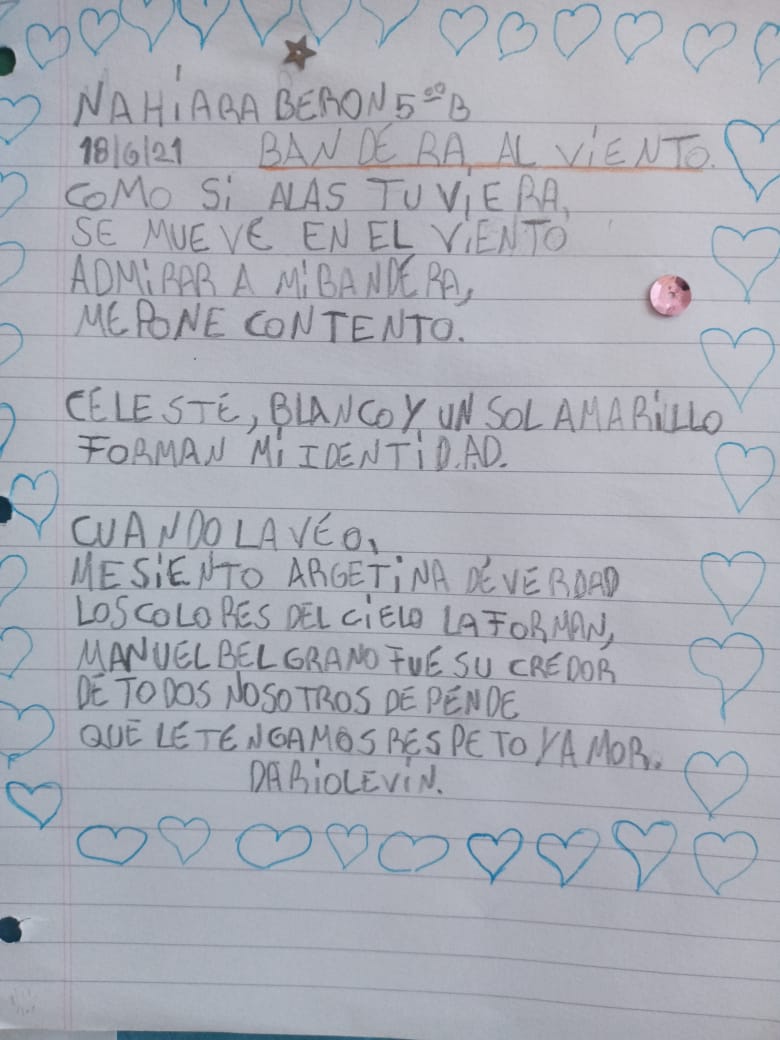 NAHIARA BERON 5º B
18/6/21 BANDERA AL VIENTO.
COMO SI ALAS TUVIERA,
SE MUEVE EN EL VIENTO
ADMIRAR A MI BANDERA,
ME PONE CONTENTO.
CELESTE, BLANCO Y UN SOL AMARILLO
FORMAN MI IDENTIDAD.
CUANDO LA VEO,
ME SIENTO ARGETINA DE VERDAD
LOS COLORES DEL CIELO LA FORMAN,
MANUEL BELGRANO FUE SU CREDOR
DE TODOS NOSOTROS DEPENDE
QUE LE TENGAMOS RESPETO Y AMOR.
DARIO LEVIN.